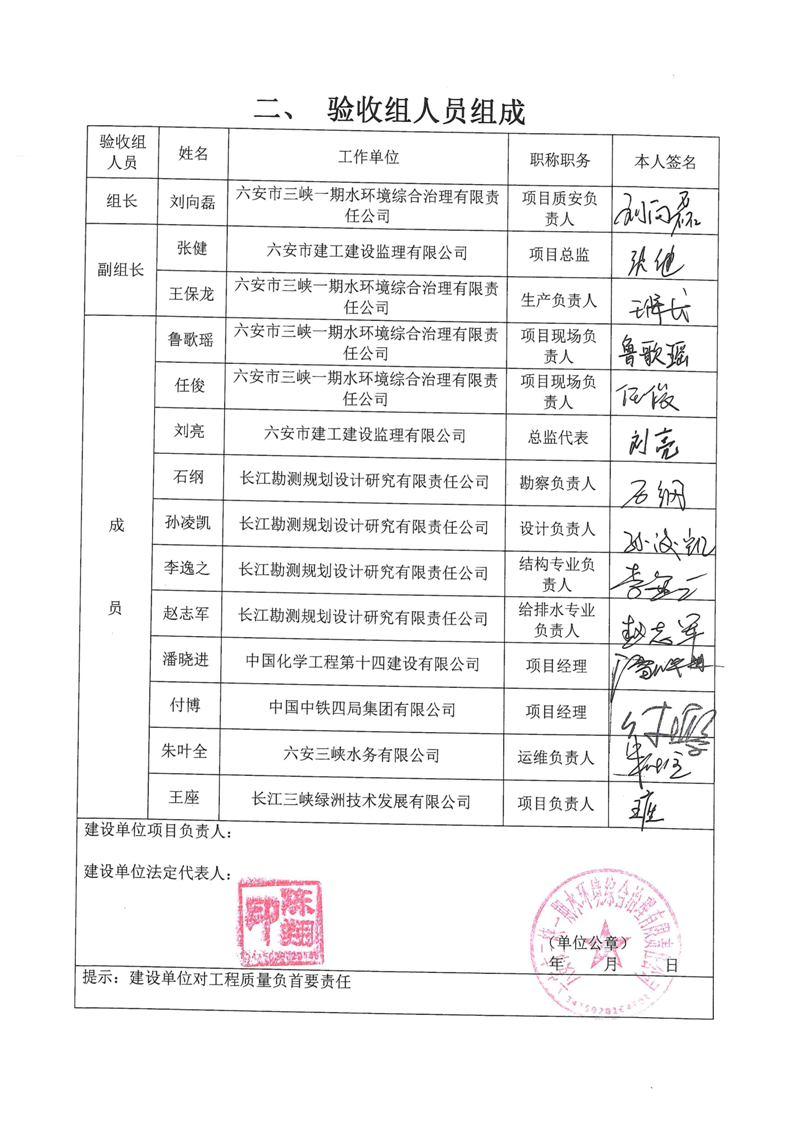 二、 验收组人员组成
验收组人员 姓名 工作单位 职称职务 本人签名
组长 刘向磊 六安市三峡一期水环境综合治理有限责任公司 项目质安负责人 刘向磊
副组长 张健 六安市建工建设监理有限公司 项目总监 张健
王保龙 六安市三峡一期水环境综合治理有限责任公司 生产负责人
成员 鲁歌瑶 六安市三峡一期水环境综合治理有限责任公司 项目现场负责人 鲁歌瑶
任俊 六安市三峡一期水环境综合治理有限责任公司 项目现场负责人 任俊
刘亮 六安市建工建设监理有限公司 总监代表 刘亮
石纲 长江勘测规划设计研究有限责任公司 勘察负责人 石纲
孙凌凯 长江勘测规划设计研究有限责任公司 设计负责人 孙凌凯
李逸之 长江勘测规划设计研究有限责任公司 结构专业负责人 李逸之
赵志军 长江勘测规划设计研究有限责任公司 给排水专业负责人 赵志军
潘晓进 中国化学工程第十四建设有限公司 项目经理
付博 中国中铁四局集团有限公司 项目经理 付博
朱叶全 六安三峡水务有限公司 运维负责人
王座 长江三峡绿洲技术发展有限公司 项目负责人 王座
建设单位项目负责人：
建设单位法定代表人：
陈翔印
（单位公章）
年 月 日
提示：建设单位对工程质量负首要责任